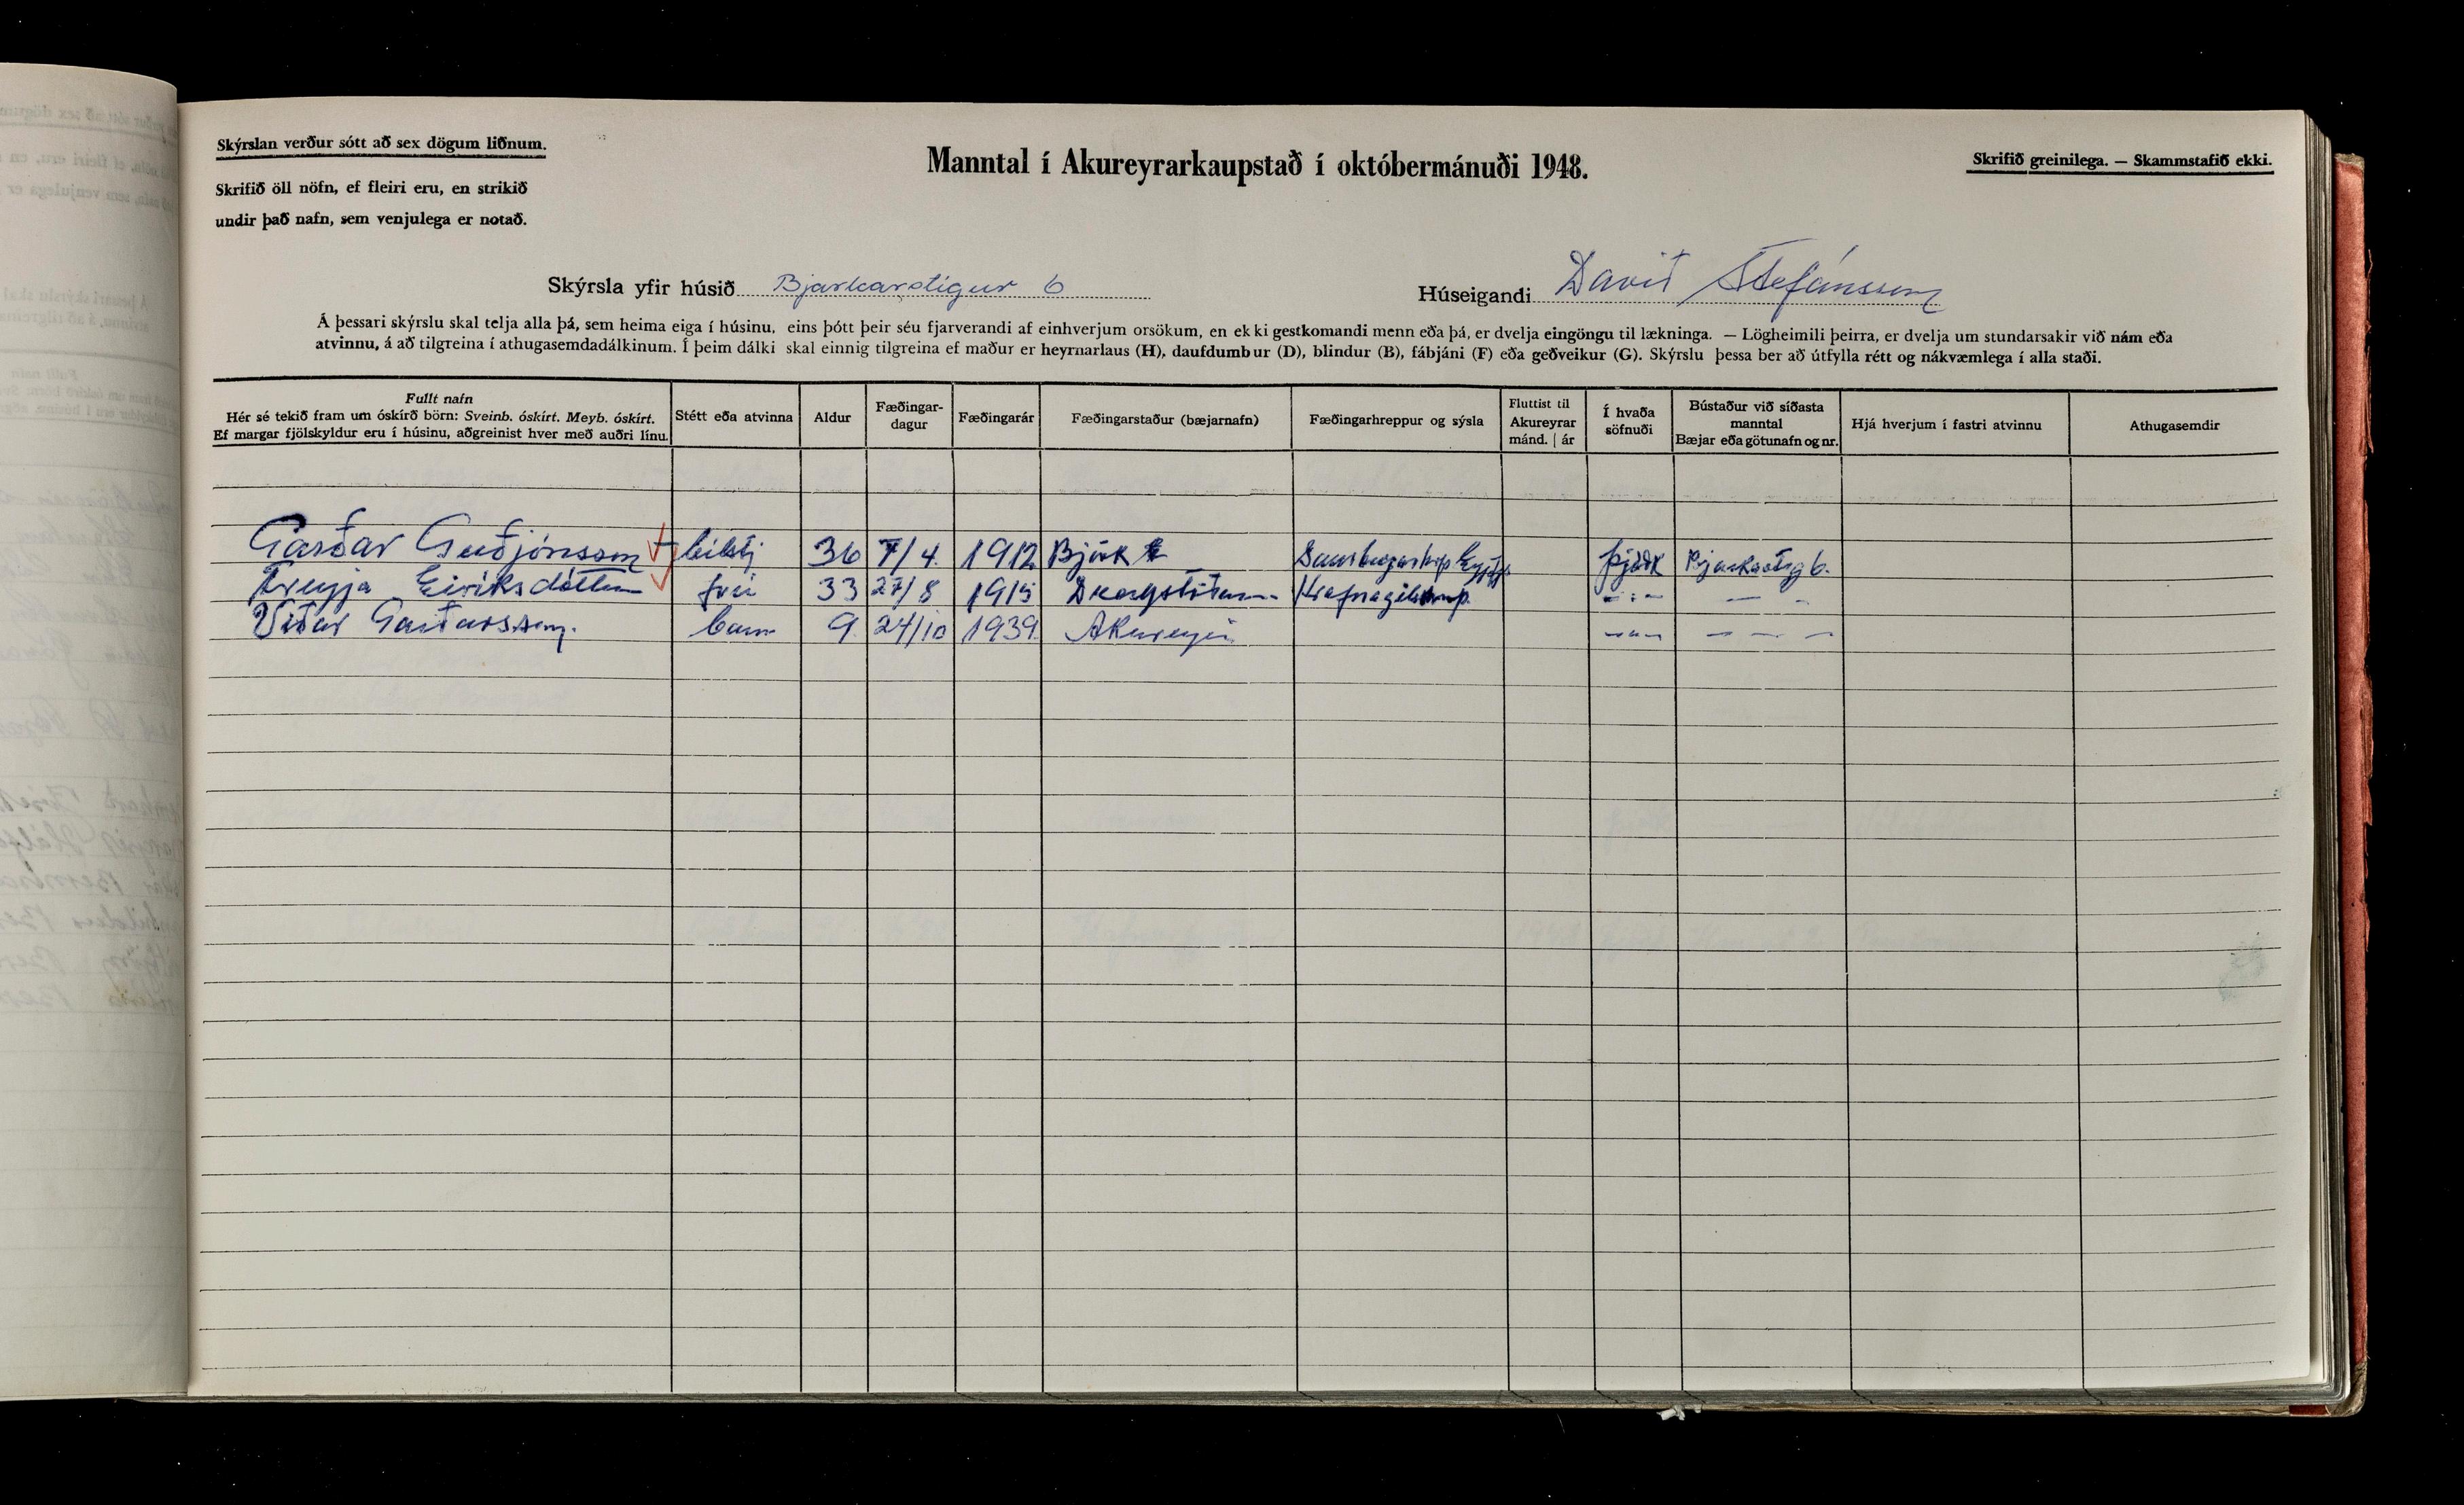 Skýrslan verður sótt að sex dögum liðnum.
Skrifið öll nöfn, ef fleiri eru, en strikið
undir það nafn, sem venjulega er notað.
Manntal í Akureyrarkaupstað í októbermánuði 1948.
Skrifið greinilega. — Skammstafið ekki.
Skýrsla yfir húsið Bjarkarstígur 6
Húseigandi Davíð Stefánsson
Á þessari skýrslu skal telja alla þá, sem heima eiga í húsinu, eins þótt þeir séu fjarverandi af einhverjum orsökum, en ekki gestkomandi menn eða þá, er dvelja eingöngu til lækninga. — Lögheimili þeirra, er dvelja um stundarsakir við nám eða
atvinnu, á að tilgreina í athugasemdadálkinum. Í þeim dálki skal einnig tilgreina ef maður er heyrnarlaus (H), daufdumbur (D), blindur (B), fábjáni (F) eða geðveikur (G). Skýrslu þessa ber að útfylla rétt og nákvæmlega í alla staði.
Fullt nafn
Hér sé tekið fram um óskírð börn: Sveinb. óskírt. Meyb. óskírt.
Ef margar fjölskyldur eru í húsinu, aðgreinist hver með auðri línu.
Stétt eða atvinna
Aldur
Fæðingar-
dagur
Fæðingarár
Fæðingarstaður (bæjarnafn)
Fæðingarhreppur og sýsla
Fluttist til
Akureyrar
mánd. | ár
Í hvaða
söfnuði
Bústaður við síðasta
manntal
Bæjar eða götunafn og nr.
Hjá hverjum í fastri atvinnu
Athugasemdir
Garðar Guðjónsson bílstj 36 7/4. 1912 Björk þjóðk Bjarkastíg 6.
Freyja Eiríksdóttir frú 33 27/8 1915 — : — — —
Viðar Garðarsson. barn 9. 24/10 1939. Akureyri — — — — — —